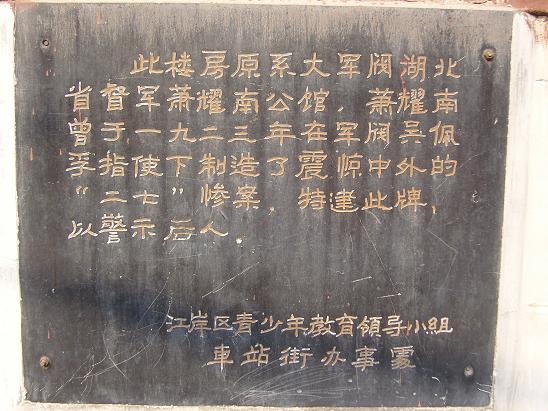 此楼房原系大军阀湖北
省督军萧耀南公馆,萧耀南
曾于一九二三年在军阀吴佩
孚指使下制造了震惊中外的
“二七”惨案,特建此牌,
以警示后人.
江岸区青少年教育領导小組
車站街办事處